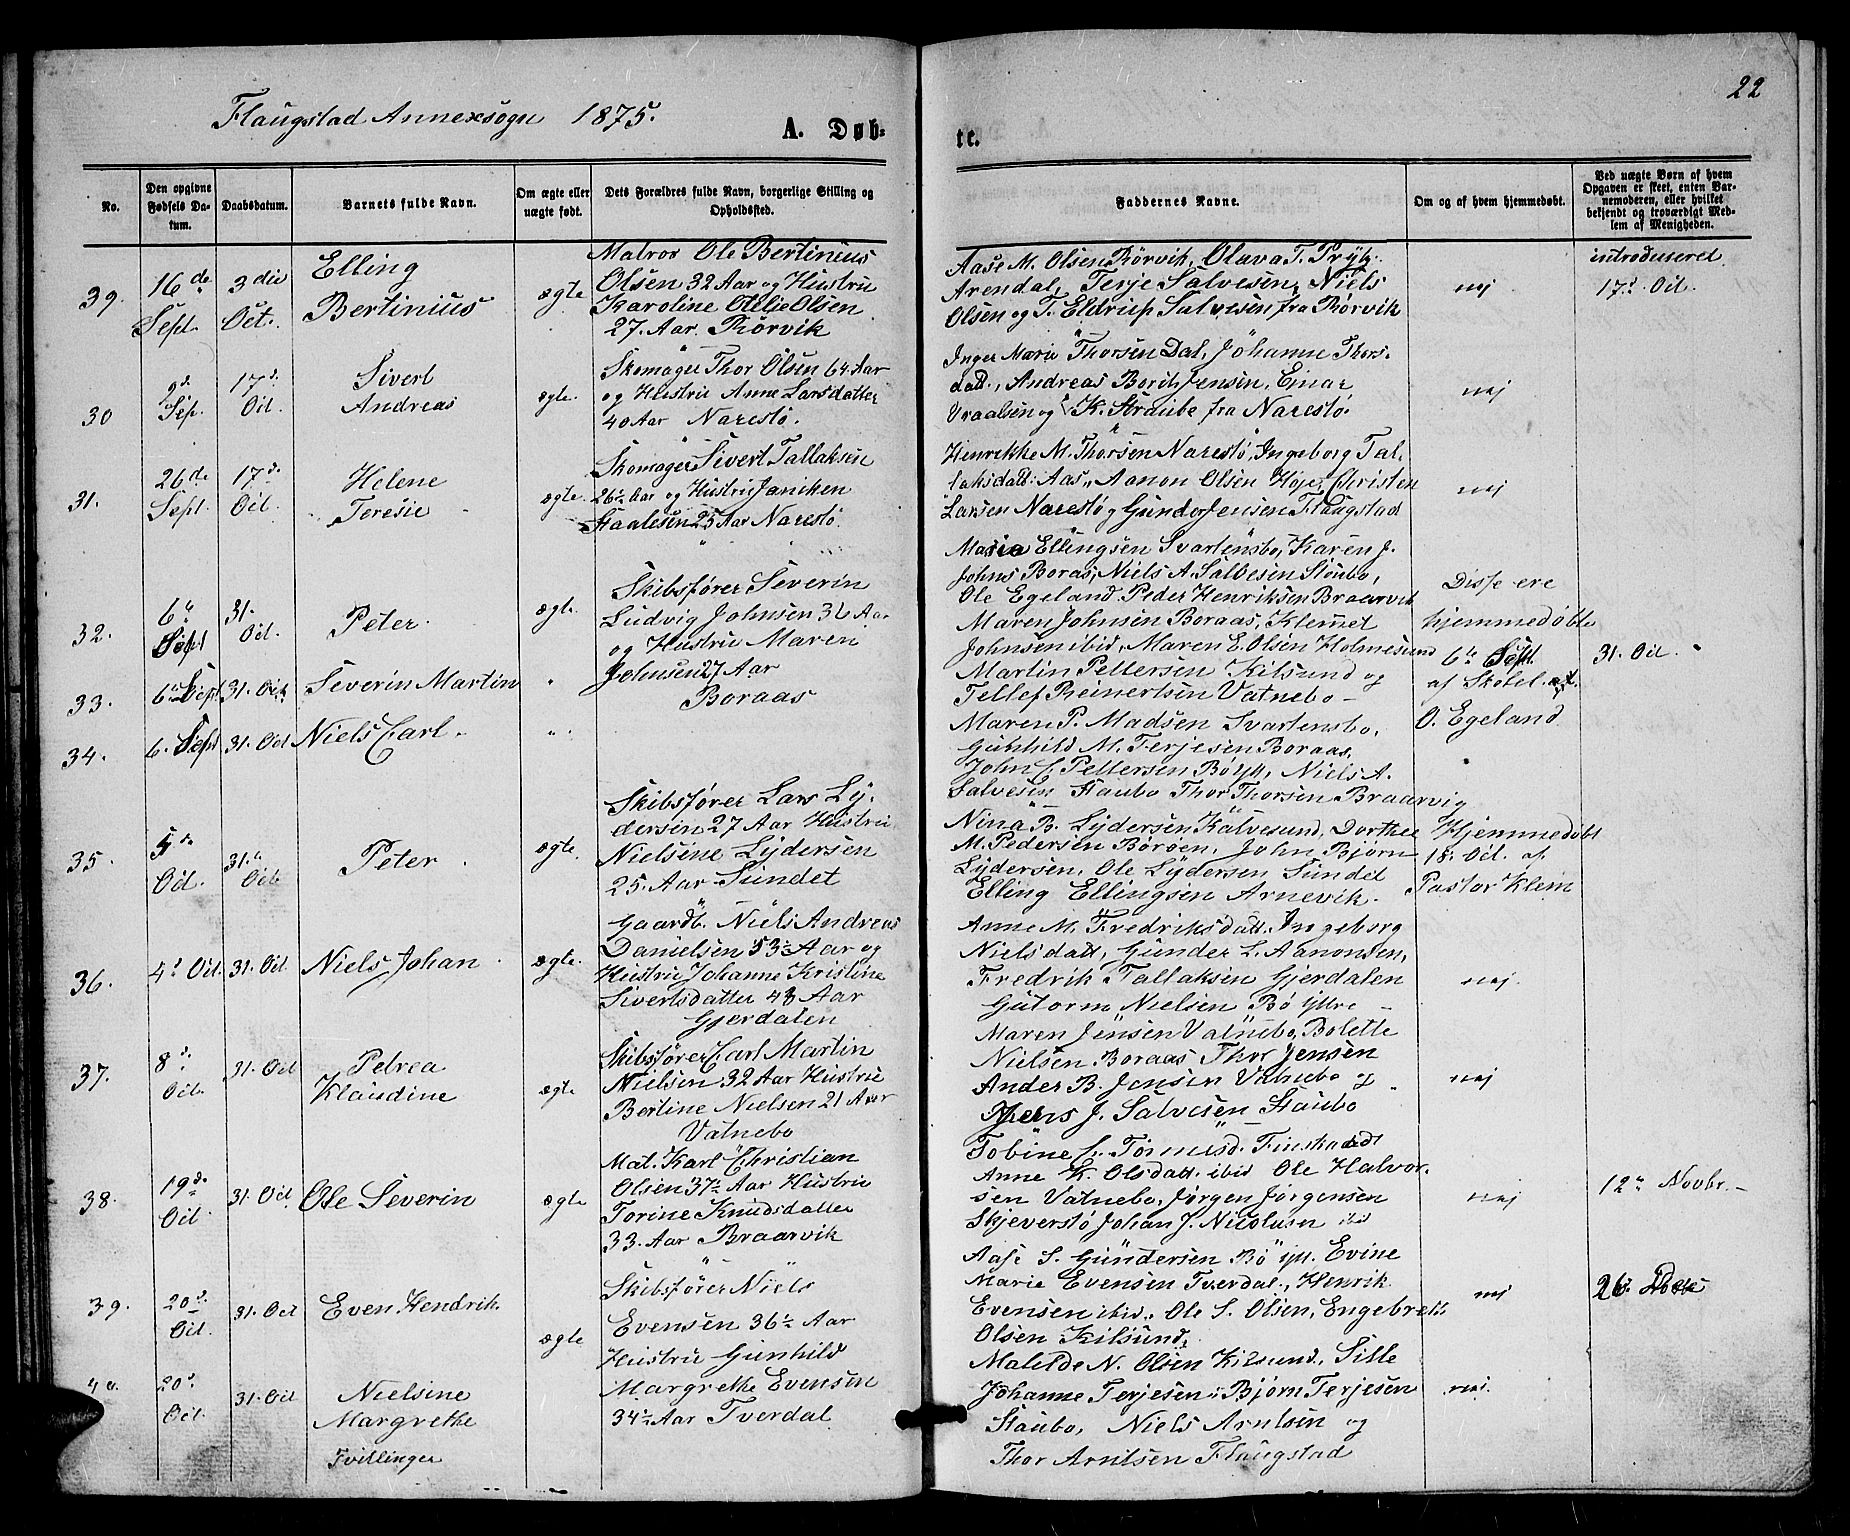 22
Flaugstad Annexsogn 1875.
A. Døb-
te.
No.
Den opgivne Fødsels Da-tum.
Daabsdatum.
Barnets fulde Navn.
Om ægte eller uægte født.
Dets Forældres fulde Navn, borgerlige Stilling og Opholdssted.
Faddernes Navne.
Om og af hvem hjemmedøbt.
Ved uægte Børn af hvem Opgaven er skeet, enten Bar-nemoderen, eller hvilket bekjendt og troværdigt Med-lem af Menigheden.
39.
16de Sept.
3die Oct.
Elling
Bertinius
ægte.
Matros Ole Bertinius
Olsen 32 Aar og Hustru
Karoline Otelie Olsen
27. Aar. Rörvik
Aase M. Olsen Rörvik, Olava T. Prytz
Arendal, Terje Salvesen, Niels
Olsen og T. Eldrup Salvesen fra Rörvik
nej
introduseret
17d Oct.
30
9d Sep.
17d Oct.
Sivert
Andreas
ægte.
Skomager Thor Olsen 64 Aar
og Hustru Anne Larsdatter
40 Aar Narestö.
Inger Marie Thorsen Dal, Johanne Thors-
datt., Andreas Borch Jensen, Einar
Vraalsen og K. Straube fra Narestö.
nej
31.
26de Sept.
17d. Oct.
Helene
Teresie
ægte.
Skomager Sivert Tallaksen
26½ Aar og Hustru Janiken
Staalesen 25 Aar Narestö.
Henrikke M. Thorsen Narestö, Ingeborg Tal-
laksdatt: Aas, Aanon Olsen Höje, Christen
Larsen Narestö og Gunder Jensen Flaugstad
nej
32.
6te Sept
31. Oct.
Peter.
ægte.
Skibsförer Severin
Ludvig Johnsen 31 Aar
og Hustru Maren
Johnsen 27 Aar
Boraas
Maria Ellingsen Svartensbo, Karen J.
Johns Boras, Niels A. Salvesen Staubo,
Ole Egeland. Peder Henriksen Braarvik
Disse ere
hjemmedøbte
6te Sept.
af Skolel. est.
O. Egeland
31. Oct.
33.
6te Sept.
31. Oct.
Severin Martin
"
Maren Johnsen Boraas, Klemet
Johnsen ibid, Maren E. Olsen Holmesund
Martin Pettersen Kilsund og
Tellef Reinertsen Vatnebo –
34.
6. Sept
31. Oct
Niels Carl.
" .
Maren P. Madsen Svartensbo,
Gunhild M. Terjesen Boraas,
John C. Pettersen Bö ytt, Niels A.
Salvesen Staubo Thor Thorsen Braarvig
35.
5te Oct.
31te Oct.
Peter
ægte.
Skibsförer Lars Ly-
dersen 27 Aar Hustru
Nielsine Lydersen
25. Aar Sundet
Nina B. Lydersen Kalvesund, Dorthee
M. Pedersen Börsen, John Björn
Lydersen, Ole Lydersen Sundet
Elling Ellingsen Arnevik.
Hjemmedøbt
18. Oct. af
Pastor Klem
36.
4d Oct.
31. Oct.
Niels Johan
ægte.
Gaardb. Niels Andreas
Danielsen 53½ Aar og
Hustru Johanne Kristine
Sivertsdatter 43 Aar
Gjerdalen
Anne M. Fredriksdatt. Ingeborg
Nielsdatt, Gunder L. Aanonsen,
Fredrik Tallaksen Gjerdalen
Gutorm Nielsen Bö ytre –
nej.
37.
8d Oct.
31. Oct
Petrea
Klaudine
ægte
Skibsförer Carl Martin
Nielsen 32 Aar Hustru
Bertine Nielsen 21 Aar
Vatnebo
Maren Jensen Vatnebo, Bolette
Nielsen Boraas Thor Jensen
Ander B. Jensen Vatnebo og
Jens J. Salvesen Staubo
nej
38.
19d. Oct.
31. Oct
Ole Severin
ægte
Mat. Karl Christian
Olsen 37½ Aar Hustru
Torine Knudsdatter
33. Aar Braarvik
Tobine C. Tormesd. Finskaadt
Anne K. Olsdatt. ibid Ole Halvor-
sen Vatnebo, Jørgen Jørgensen
Skjeverstö Johan J. Nicolusen ibid
nej
12te Novbr. –
39.
20d Oct.
31. Oct
Even Hendrik.
ægte
Skibsförer Niels
Evensen 36½ Aar
Hustru Gunhild
Margrethe Evensen
34½ Aar Tverdal
Aase S. Gundersen Bö ytt. Evine
Marie Evensen Tverdal, Henrik
Evensen ibid, Ole S. Olsen, Engebret
Olsen Kilsund,
nej
26.
40.
20d. Oct.
31. Oct
Nielsine
Margrethe
Tvillinger
Matilde N. Olsen Kilsund, Sille
Johanne Terjesen, Bjørn Terjesen
Staubo, Niels Arntsen og
Thor Arntsen Flaugstad
nej.